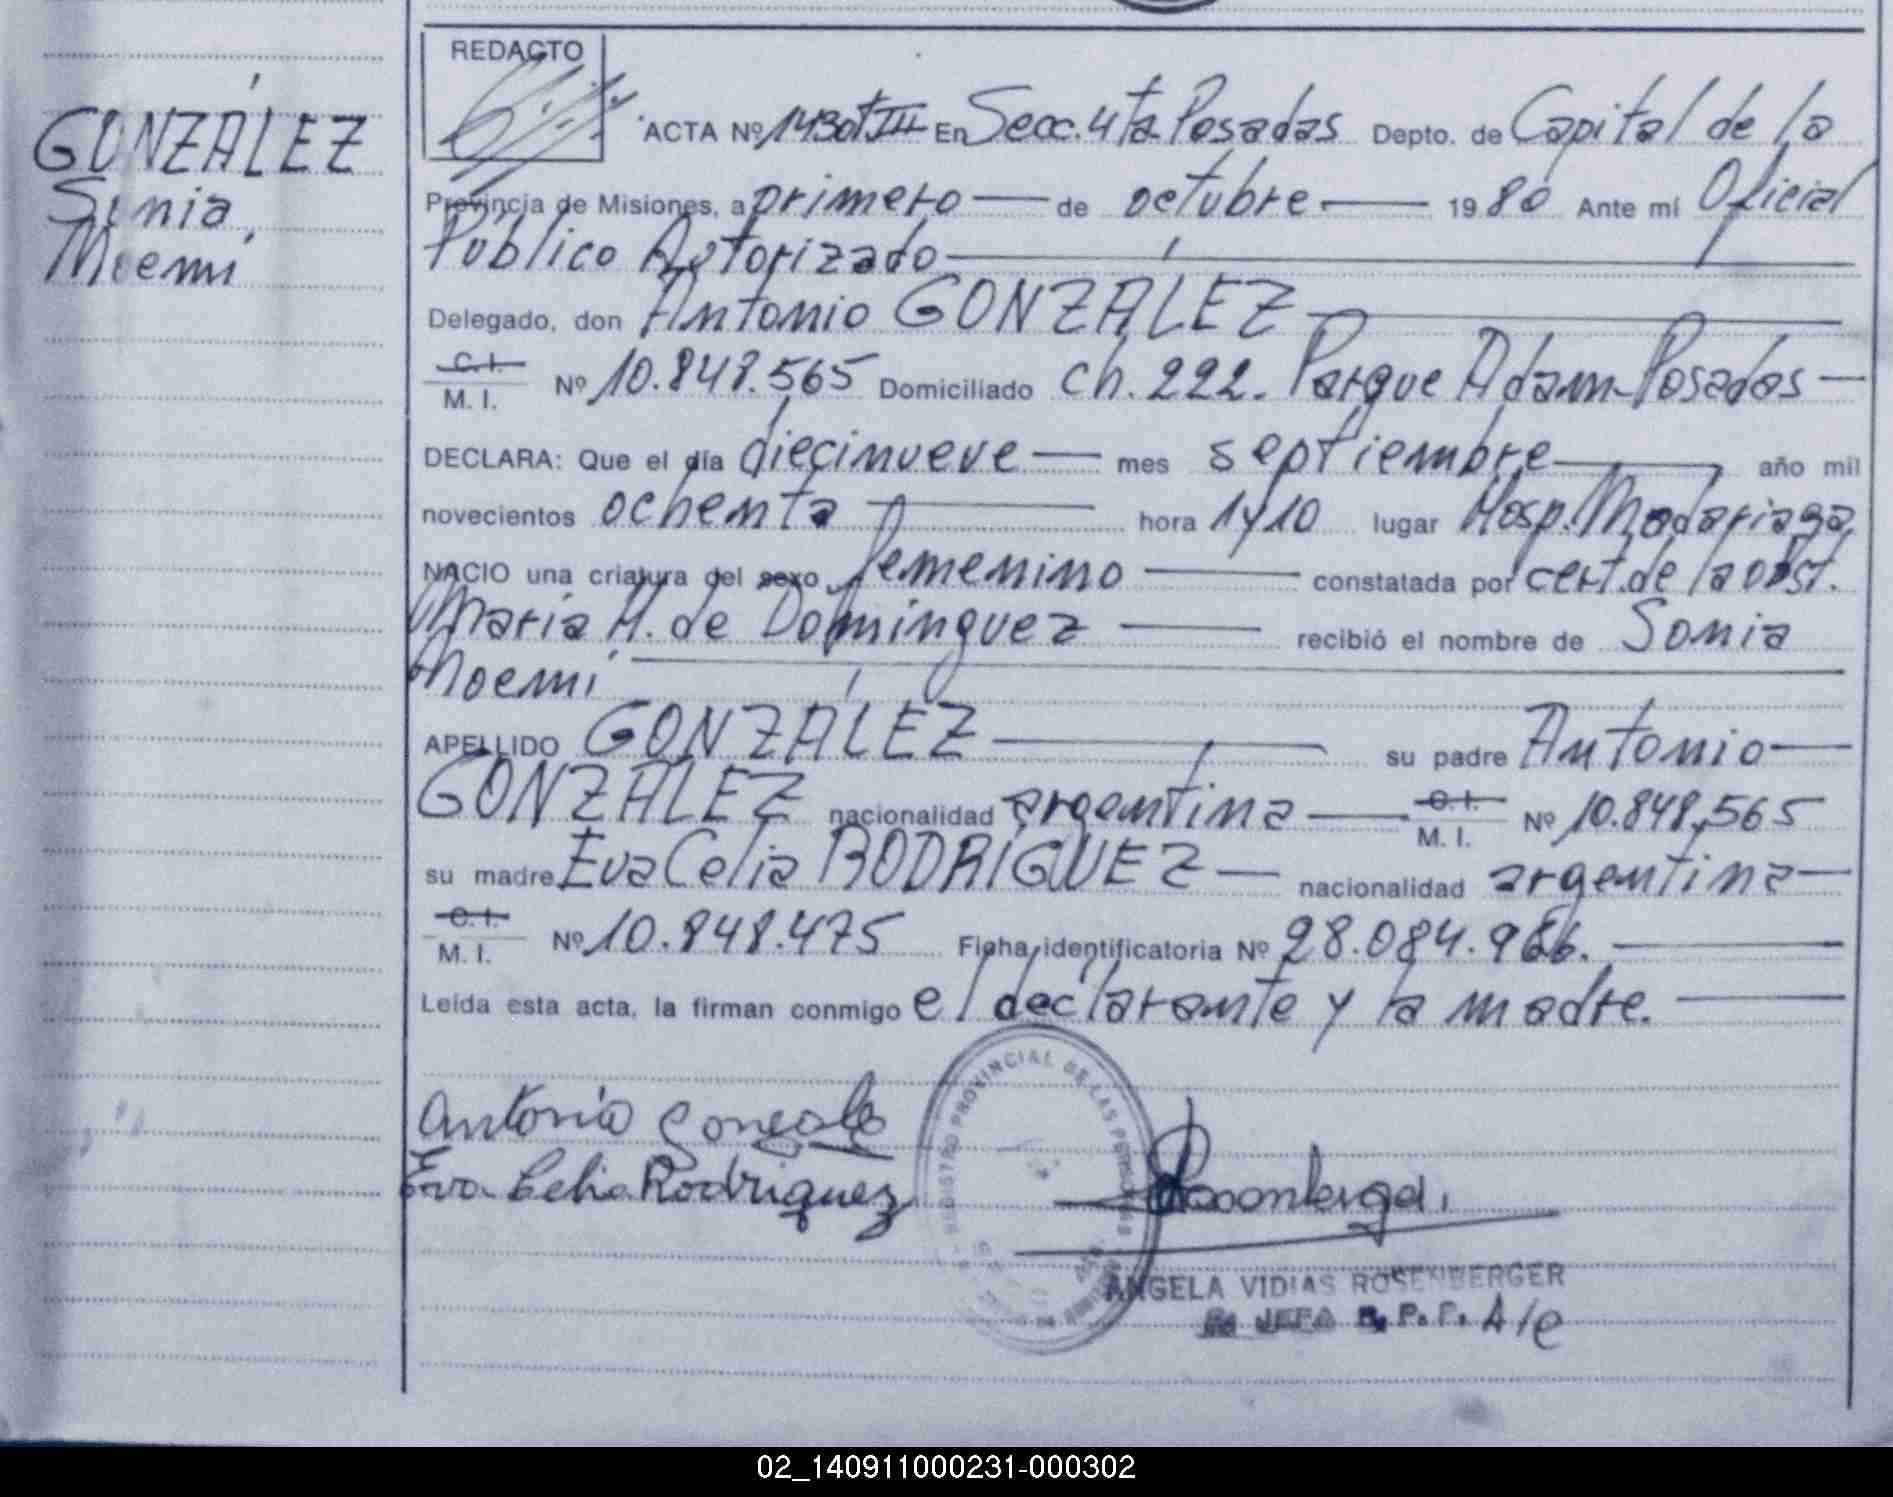 GONZÁLEZ
Sonia
Noemí
REDACTO
ACTA Nº 1430 tIII En Secc. 4ta Posadas Depto. de Capital de la
Provincia de Misiones, a primero de octubre 1980 Ante mí Oficial
Público Autorizado
Delegado, don Antonio GONZÁLEZ
C. I.
M. I. Nº 10.848.565 Domiciliado ch. 222. Parque Adam-Posadas
DECLARA: Que el día diecinueve mes septiembre año mil
novecientos ochenta hora 1y10 lugar Hosp. Madariaga
NACIO una criatura del sexo femenino constatada por cert. de la obst.
María H. de Domínguez recibió el nombre de Sonia
Noemí
APELLIDO GONZÁLEZ su padre Antonio
GONZÁLEZ nacionalidad argentina C. I. M. I. Nº 10.848.565
su madre Eva Celia RODRÍGUEZ nacionalidad argentina
C. I.
M. I. Nº 10.848.475 Ficha identificatoria Nº 28.084.966.
Leída esta acta, la firman conmigo el declarante y la madre.
Antonio Gonzalez
Eva Celia Rodriguez
REGISTRO PROVINCIAL DE LAS PERSONAS
ANGELA VIDIAS ROSENBERGER
JEFA R. P. P. A/c
02_140911000231-000302